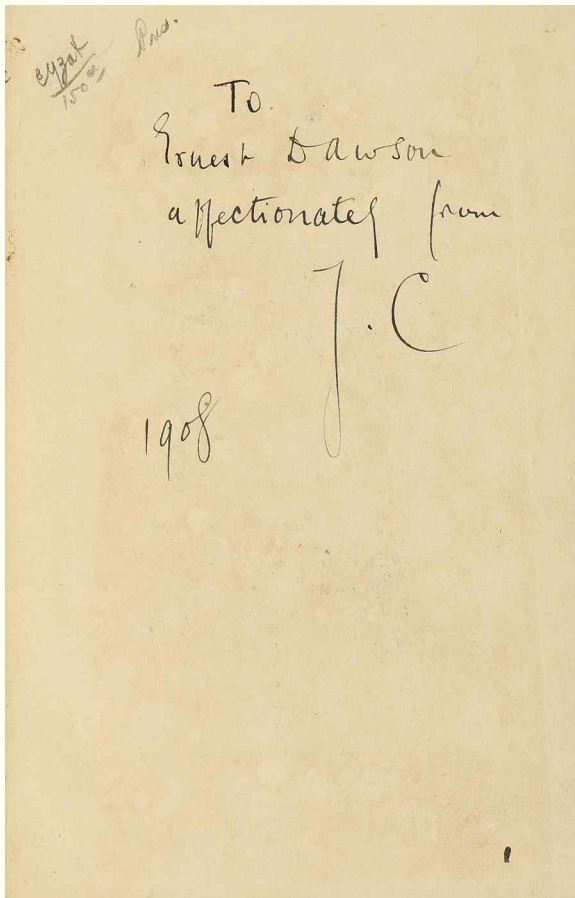 To
Ernest Dawson
affectionately from
J. C
1908